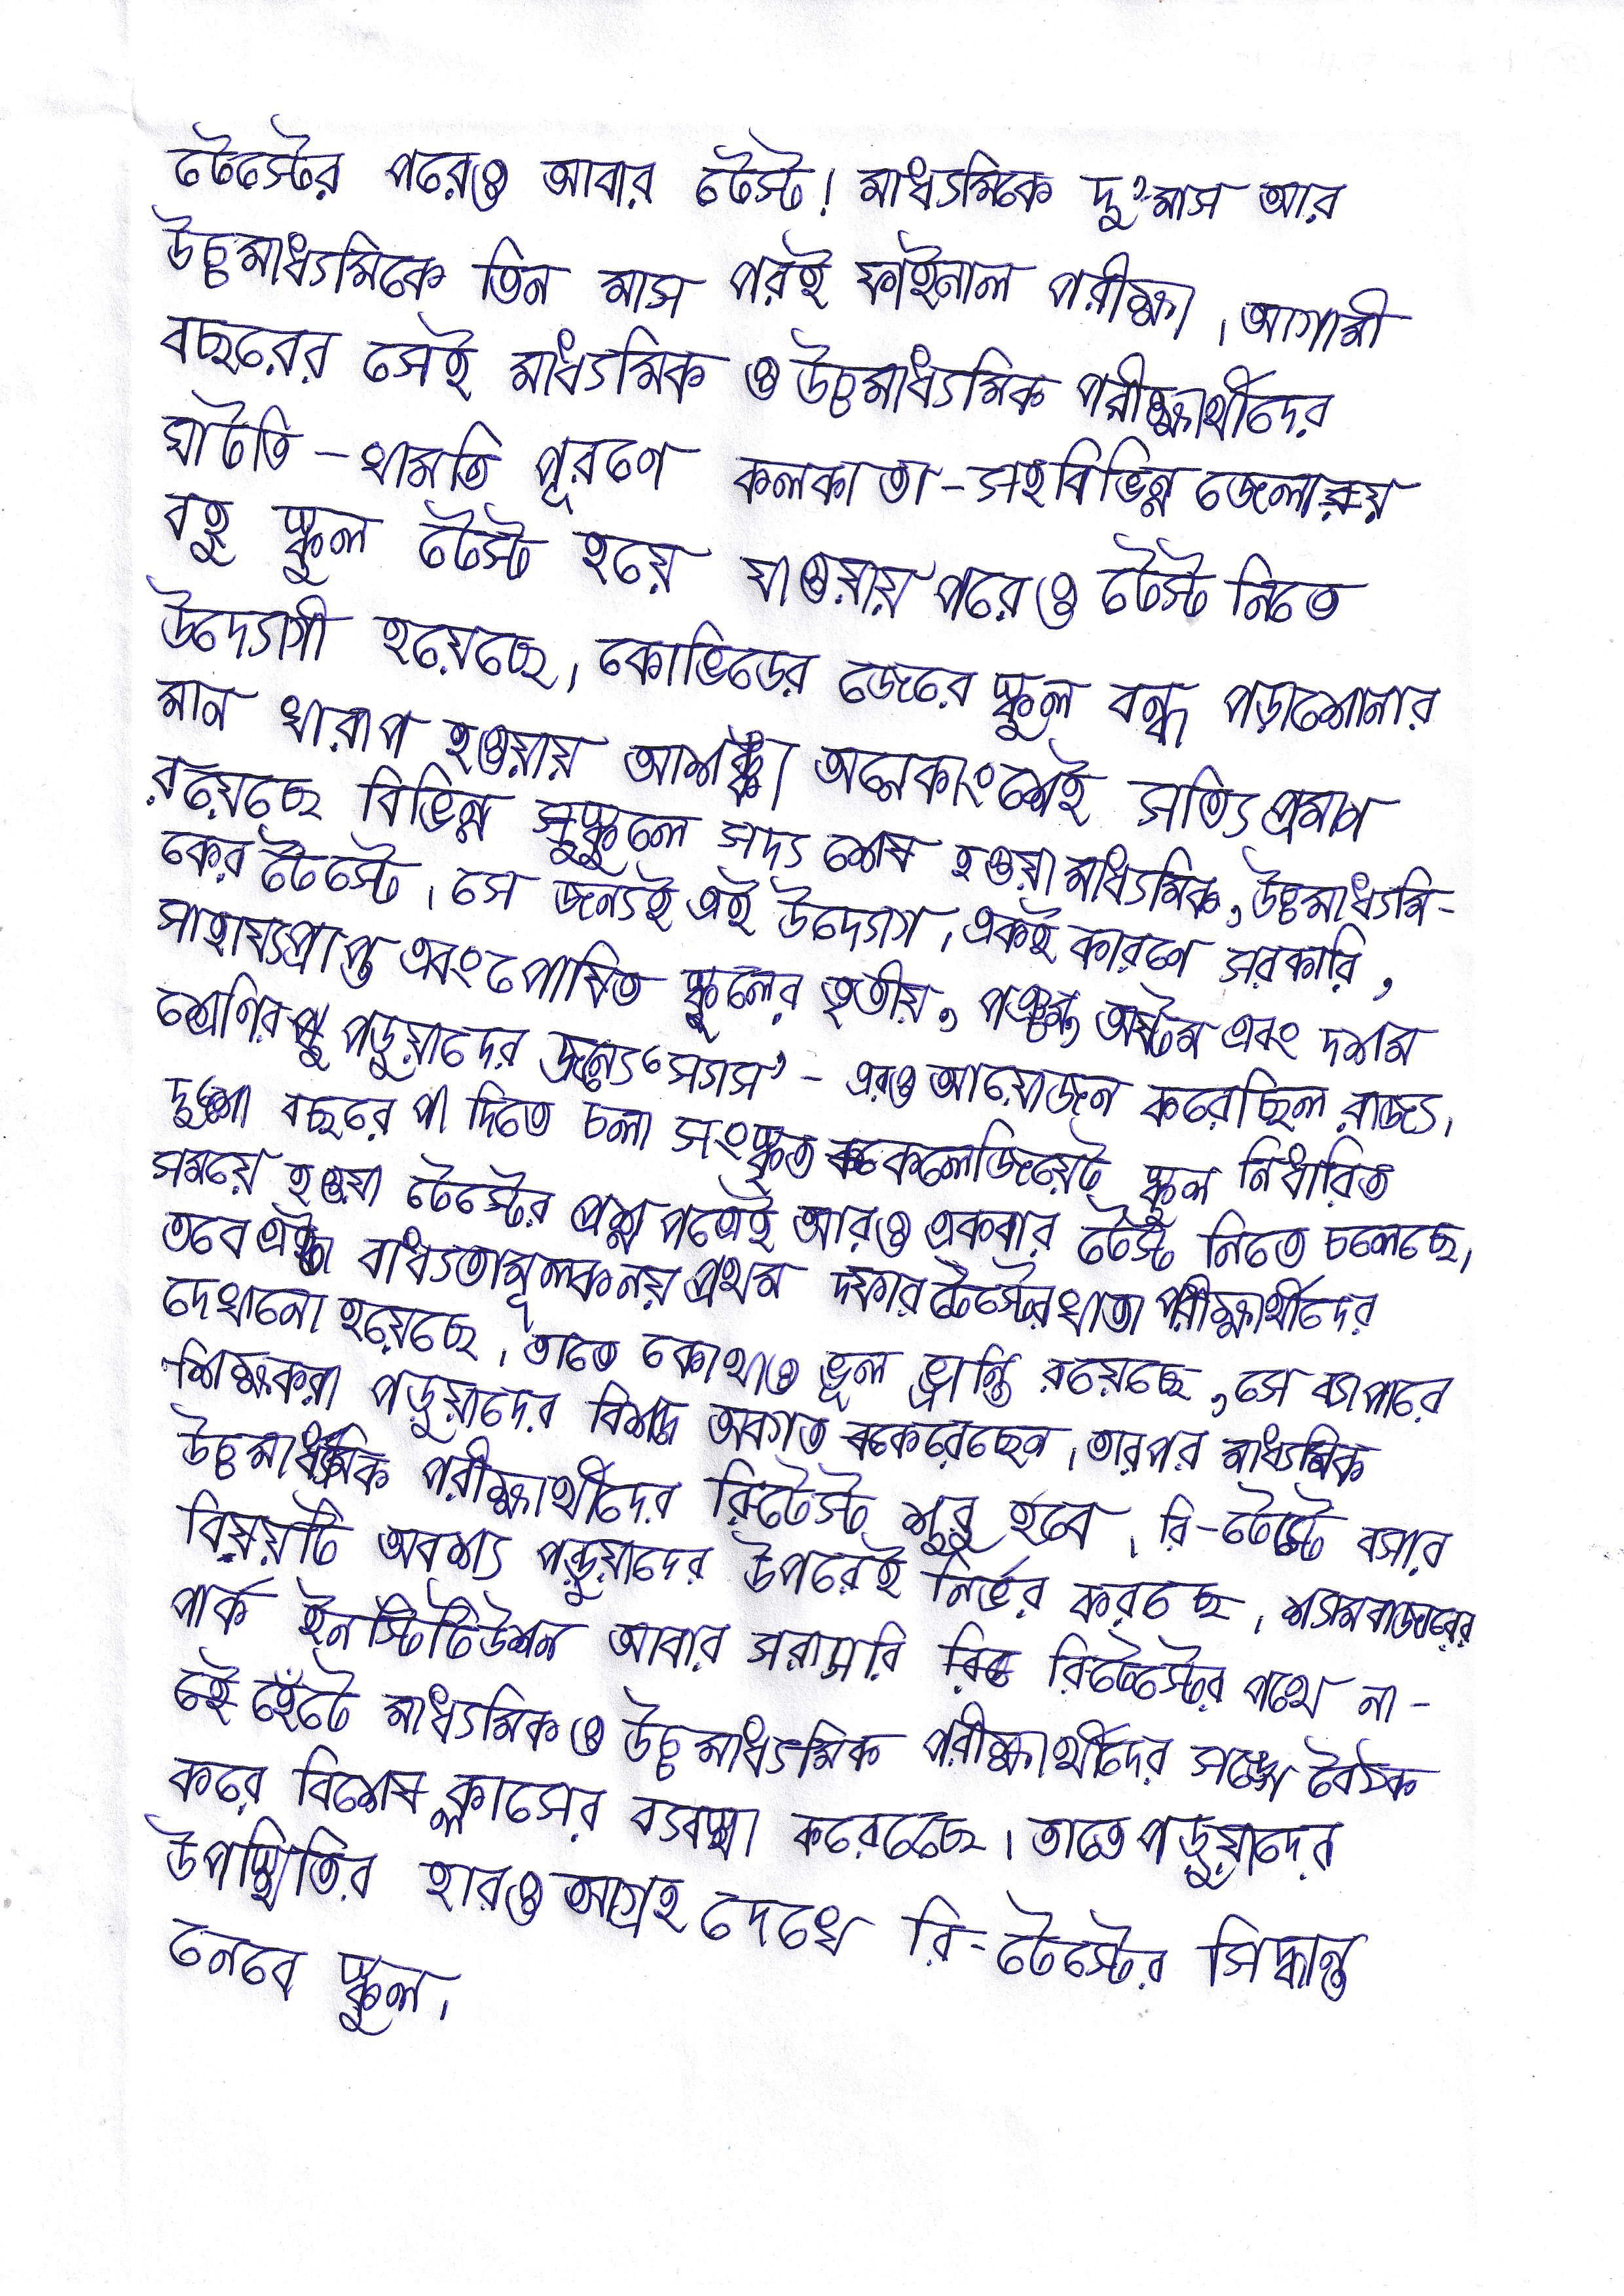 টেস্টের পরেও আবার টেস্ট! মাধ্যমিকে দু'মাস আর
উচ্চমাধ্যমিকে তিন মাস পরই ফাইনাল পরীক্ষা। আগামী
বছরের সেই মাধ্যমিক ও উচ্চমাধ্যমিক পরীক্ষার্থীদের
ঘাটতি-খামতি পূরণে কলকাতা-সহ বিভিন্ন জেলায়
বহু স্কুল টেস্ট হয়ে যাওয়ায় পরেও টেস্ট নিতে
উদ্যোগী হয়েছে। কোভিডের জেরে স্কুল বন্ধ পড়াশোনার
মান খারাপ হওয়ায় আশঙ্কা অনেকাংশেই সত্যি প্রমাণ
রয়েছে বিভিন্ন স্কুলে সদ্য শেষ হওয়া মাধ্যমিক, উচ্চমাধ্যমি-
কের টেস্টে। সে জন্যই এই উদ্যোগ। একই কারণে সরকারি,
সাহায্যপ্রাপ্ত এবং পোষিত স্কুলের তৃতীয়, পঞ্চম, অষ্টম এবং দশম
শ্রেণির পড়ুয়াদের জন্যে 'স্যাস'-এরও আয়োজন করেছিল রাজ্য।
দুশো বছরে পা দিতে চলা সংস্কৃত কলেজিয়েট স্কুল নির্ধারিত
সময়ে হওয়া টেস্টের প্রশ্ন পত্রেই আরও একবার টেস্ট নিতে চলেছে।
তবে এটা বাধ্যতামূলক নয় প্রথম দফার টেস্টের খাতা পরীক্ষার্থীদের
দেখানো হয়েছে। তাতে কোথাও ভূল ভ্রান্তি রয়েছে, সে ব্যাপারে
শিক্ষকরা পড়ুয়াদের বিশদে অবগত করেছেন। তারপর মাধ্যমিক
উচ্চমাধ্যমিক পরীক্ষার্থীদের রি-টেস্ট শুরু হবে। রি-টেস্টে বসার
বিষয়টি অবশ্য পড়ুয়াদের উপরেই নির্ভর করছে। শ্যামবাজারের
পার্ক ইনস্টিটিউশন আবার সরাসরি রি-টেস্টের পথে না-
ই হেঁটে মাধ্যমিক ও উচ্চমাধ্যমিক পরীক্ষার্থীদের সঙ্গে বৈঠক
করে বিশেষ ক্লাসের ব্যবস্থা করেছে। তাতে পড়ুয়াদের
উপস্থিতির হার ও আগ্রহ দেখে রি-টেস্টের সিদ্ধান্ত
নেবে স্কুল।